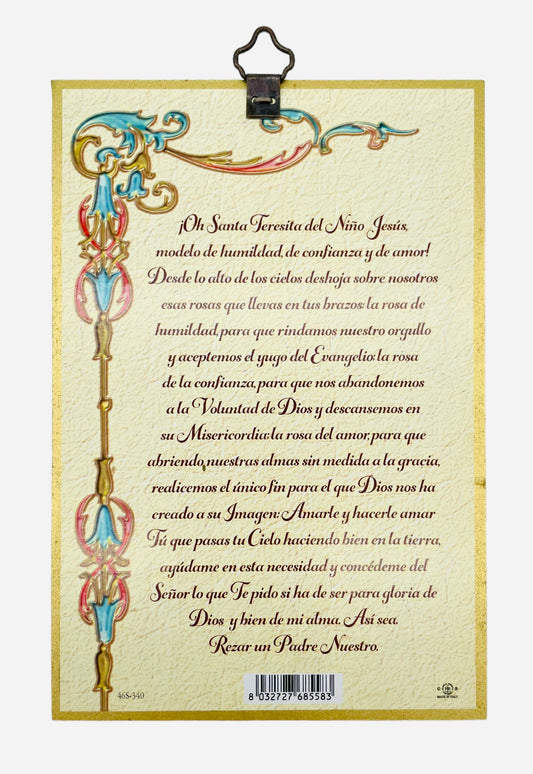 ¡Oh Santa Teresita del Niño Jesús,
modelo de humildad, de confianza y de amor!
Desde lo alto de los cielos deshoja sobre nosotros
esas rosas que llevas en tus brazos: la rosa de
humildad, para que rindamos nuestro orgullo
y aceptemos el yugo del Evangelio: la rosa
de la confianza, para que nos abandonemos
a la Voluntad de Dios y descansemos en
su Misericordia: la rosa del amor, para que
abriendo nuestras almas sin medida a la gracia,
realicemos el único fin para el que Dios nos ha
creado a su Imagen: Amarle y hacerle amar
Tú que pasas tu Cielo haciendo bien en la tierra,
ayúdame en esta necesidad y concédeme del
Señor lo que Te pido si ha de ser para gloria de
Dios y bien de mi alma. Así sea.
Rezar un Padre Nuestro.
46S-340
8 032727 685583
MADE IN ITALY